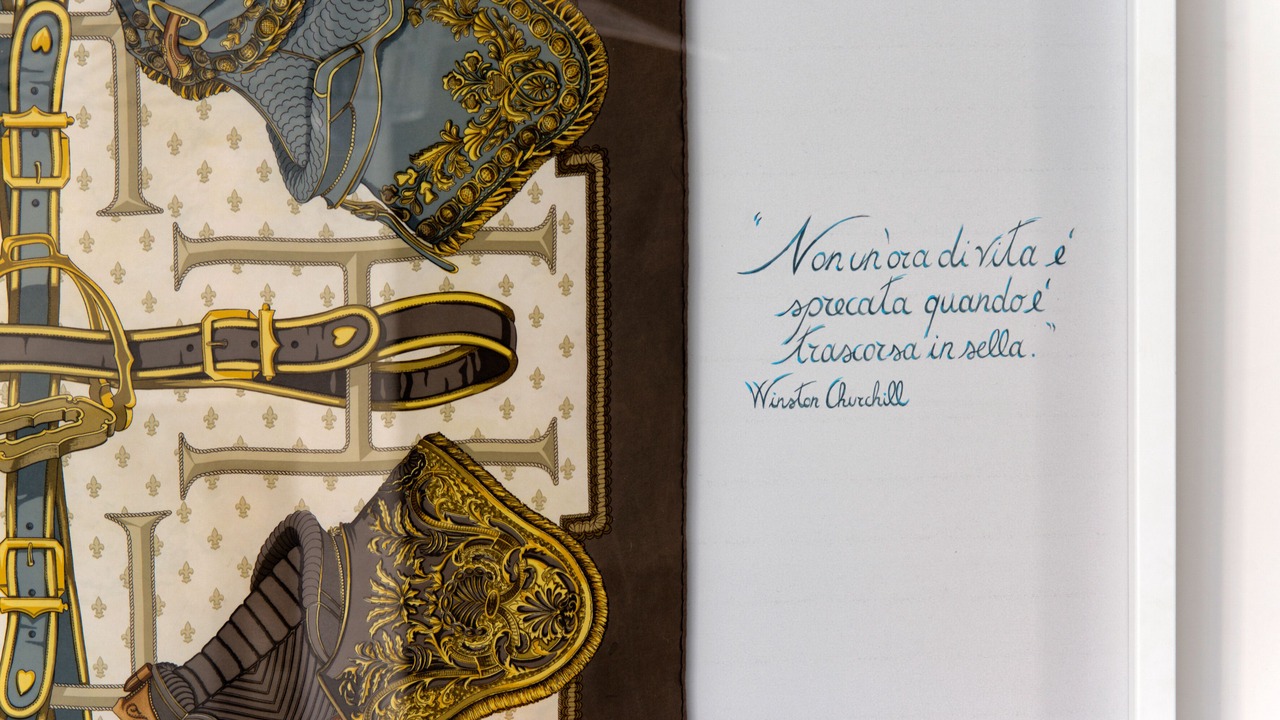 "Non un'ora di vita é
sprecata quando é
trascorsa in sella."
Winston Churchill